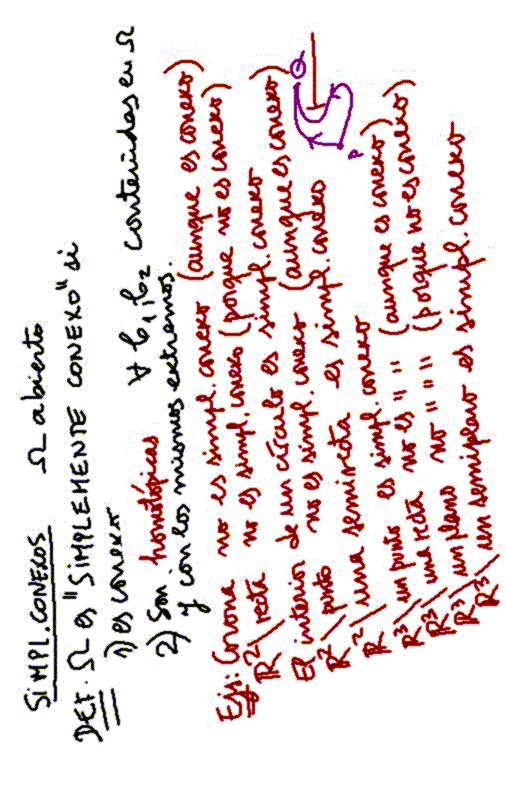 SIMPL. CONEXOS Ω abierto
DEF. Ω es "SIMPLEMENTE CONEXO" si
1) es conexo
2) Son homotópicas ∀ C₁, C₂ contenidas en Ω
y con los mismos extremos.
Ejs: Corona no es simpl. conexo (aunque es conexo)
ℝ² \ recta no es simpl. conexo (porque no es conexo)
El interior de un círculo es simpl. conexo
ℝ² \ punto no es simpl. conexo (aunque es conexo)
ℝ² \ una semirecta es simpl. conexo
ℝ³ \ un punto es simpl. conexo
ℝ³ \ una recta no es " " (aunque es conexo)
ℝ³ \ un plano no " " " (porque no es conexo)
ℝ³ \ un semiplano es simpl. conexo
P
Q